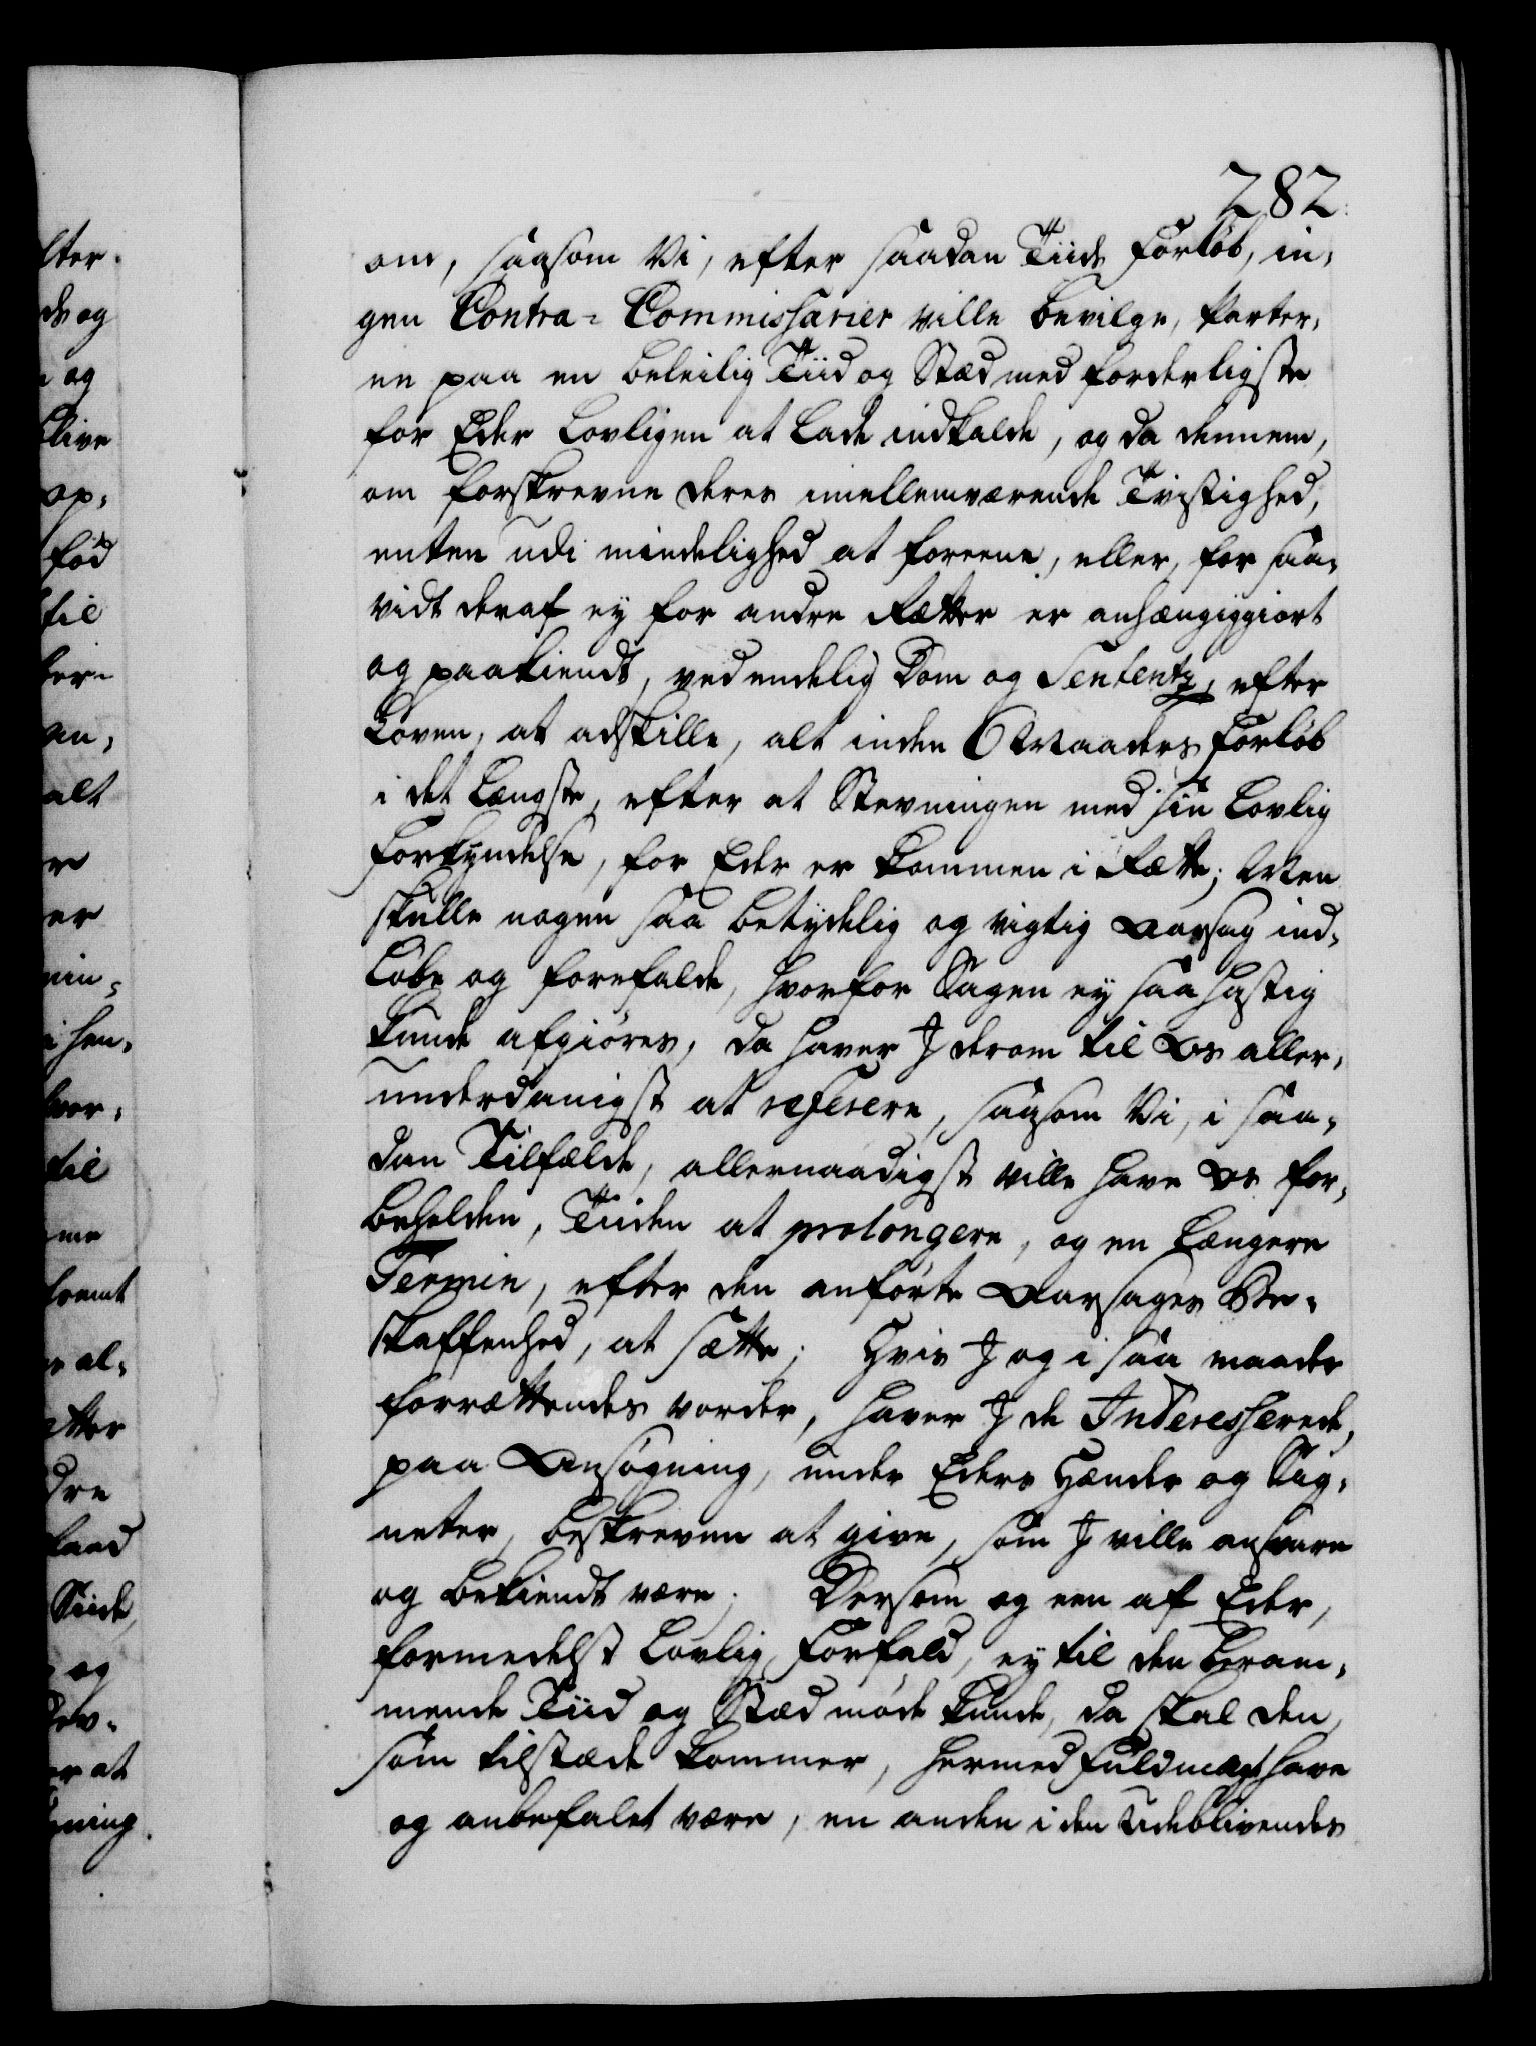 282.
om, saasom Vi, efter saadan Tiids Forløb, in-
gen Contra-Commissarier ville bevilge, Parter-
ne paa en beleilig Tiid og Stæd med forderligste
for Eder Lovligen at lade indkalde, og da dennem,
om forskrevne deres imellemværende Tvistighed,
enten udi mindelighed at foreene, eller, for saa-
vidt deraf ey for andre Rætter er anhængiggiort
og paakiendt, ved endelig Dom og Sententz, efter
Loven, at adskille, alt inden 6 Maaders Forløb
i det længste, efter at Stevningen med sin Lovlig
Forkyndelse, for Eder er kommen i Rætte; Men
skulle nogen saa betydelig og vigtig Aarsag ind-
løbe og forefalde, hvorfor Sagen ey saa hastig
kunde afgiøres, da haver J derom til Os aller-
underdanigst at referere, saasom Vi, i saa-
dan Tilfælde, allernaadigst ville have Os for-
beholden, Tiiden at prolongere, og en længere
Termin, efter den anførte Aarsages Be-
skaffenhed, at sætte; Hvis J og i saa maader
forrættendes vorder, haver J de Interesserede,
paa Ansøgning, under Eders Hænder og Sig-
neter, beskreven at give, som J ville ansvare
og bekiendt være; Dersom og een af Eder,
formedelst Lovlig Forfald, ey til den beram-
mende Tiid og Stæd møde kunde, da skal den,
som tilstæde kommer, hermed Fuldmagt have
og anbefalet være, en anden i den Udeblivendes